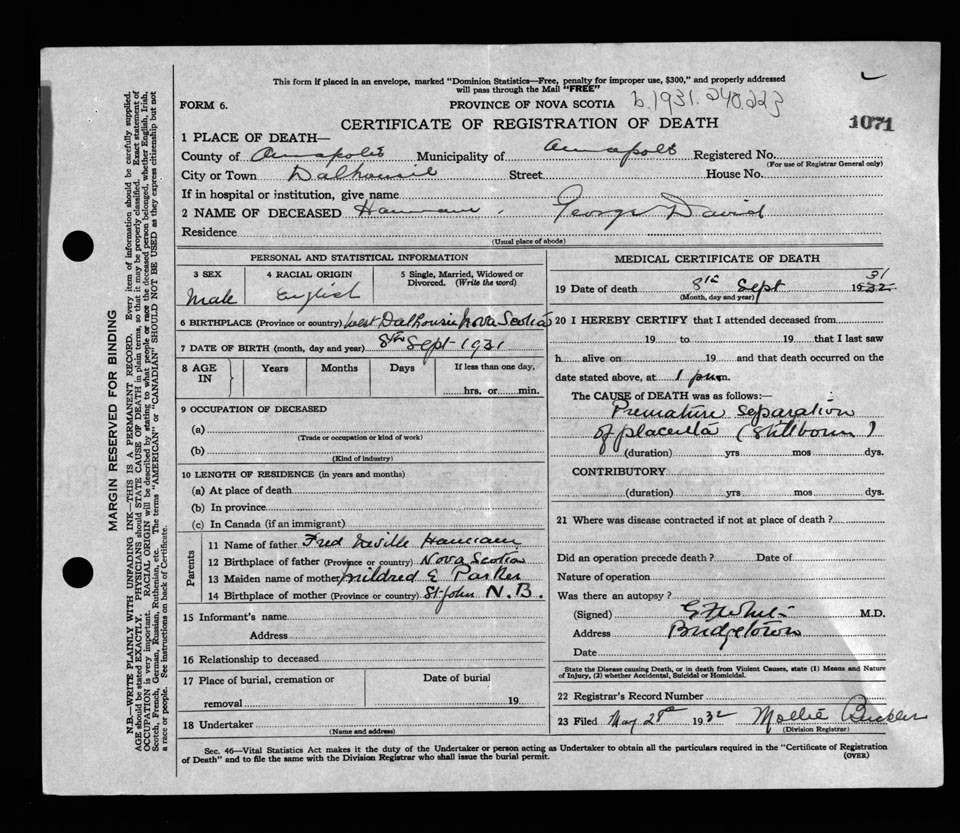 This form if placed in an envelope, marked "Dominion Statistics—Free, penalty for improper use, $300," and properly addressed
will pass through the Mail "FREE"
FORM 6.
PROVINCE OF NOVA SCOTIA b.1931.240.223
CERTIFICATE OF REGISTRATION OF DEATH
1071
1 PLACE OF DEATH—
County of Annapolis Municipality of Annapolis Registered No.
(For use of Registrar General only)
City or Town Dalhousie Street House No.
If in hospital or institution, give name
2 NAME OF DECEASED Hannam, George David
Residence
(Usual place of abode)
PERSONAL AND STATISTICAL INFORMATION
3 SEX 4 RACIAL ORIGIN 5 Single, Married, Widowed or
Divorced. (Write the word)
Male English
6 BIRTHPLACE (Province or country) West Dalhousie Nova Scotia
7 DATE OF BIRTH (month, day and year) 8th Sept 1931
8 AGE IN Years Months Days If less than one day,
hrs. or min.
9 OCCUPATION OF DECEASED
(a)
(Trade or occupation or kind of work)
(b)
(Kind of industry)
10 LENGTH OF RESIDENCE (in years and months)
(a) At place of death
(b) In province
(c) In Canada (if an immigrant)
Parents
11 Name of father Fred Neville Hannam
12 Birthplace of father (Province or country) Nova Scotia
13 Maiden name of mother Mildred E Parker
14 Birthplace of mother (Province or country) St John N.B.
15 Informant's name
Address
16 Relationship to deceased
17 Place of burial, cremation or Date of burial
removal 19
18 Undertaker
(Name and address)
MEDICAL CERTIFICATE OF DEATH
31
19 Date of death 8th Sept 1932
(Month, day and year)
20 I HEREBY CERTIFY that I attended deceased from
19 to 19 that I last saw
h alive on 19 and that death occurred on
date stated above, at 1 p.m.
The CAUSE of DEATH was as follows:—
Premature separation
of placenta (Stillborn)
(duration) yrs mos dys.
CONTRIBUTORY
(duration) yrs mos dys.
21 Where was disease contracted if not at place of death?
Did an operation precede death? Date of
Nature of operation
Was there an autopsy?
(Signed) M.D.
Address Bridgetown
Date
State the Disease causing Death, or in death from Violent Causes, state (1) Means and Nature
of Injury, (2) whether Accidental, Suicidal or Homicidal.
22 Registrar's Record Number
23 Filed May 28th 1932 Mollie Buckler
(Division Registrar)
Sec. 46—Vital Statistics Act makes it the duty of the Undertaker or person acting as Undertaker to obtain all the particulars required in the "Certificate of Registration
of Death" and to file the same with the Division Registrar who shall issue the burial permit.
(OVER)
MARGIN RESERVED FOR BINDING
N.B.—WRITE PLAINLY WITH UNFADING INK—THIS IS A PERMANENT RECORD. Every item of information should be carefully supplied.
AGE should be stated EXACTLY. PHYSICIANS should STATE CAUSE OF DEATH in plain terms, so that it may be properly classified. Exact statement of
OCCUPATION is very important. RACIAL ORIGIN will be described by stating to what people or race the deceased person belonged, whether English, Irish,
Scotch, French, German, Russian, Ruthenian, etc. The terms "AMERICAN" or "CANADIAN" SHOULD NOT BE USED as they express citizenship but not
a race or people. See instructions on back of Certificate.